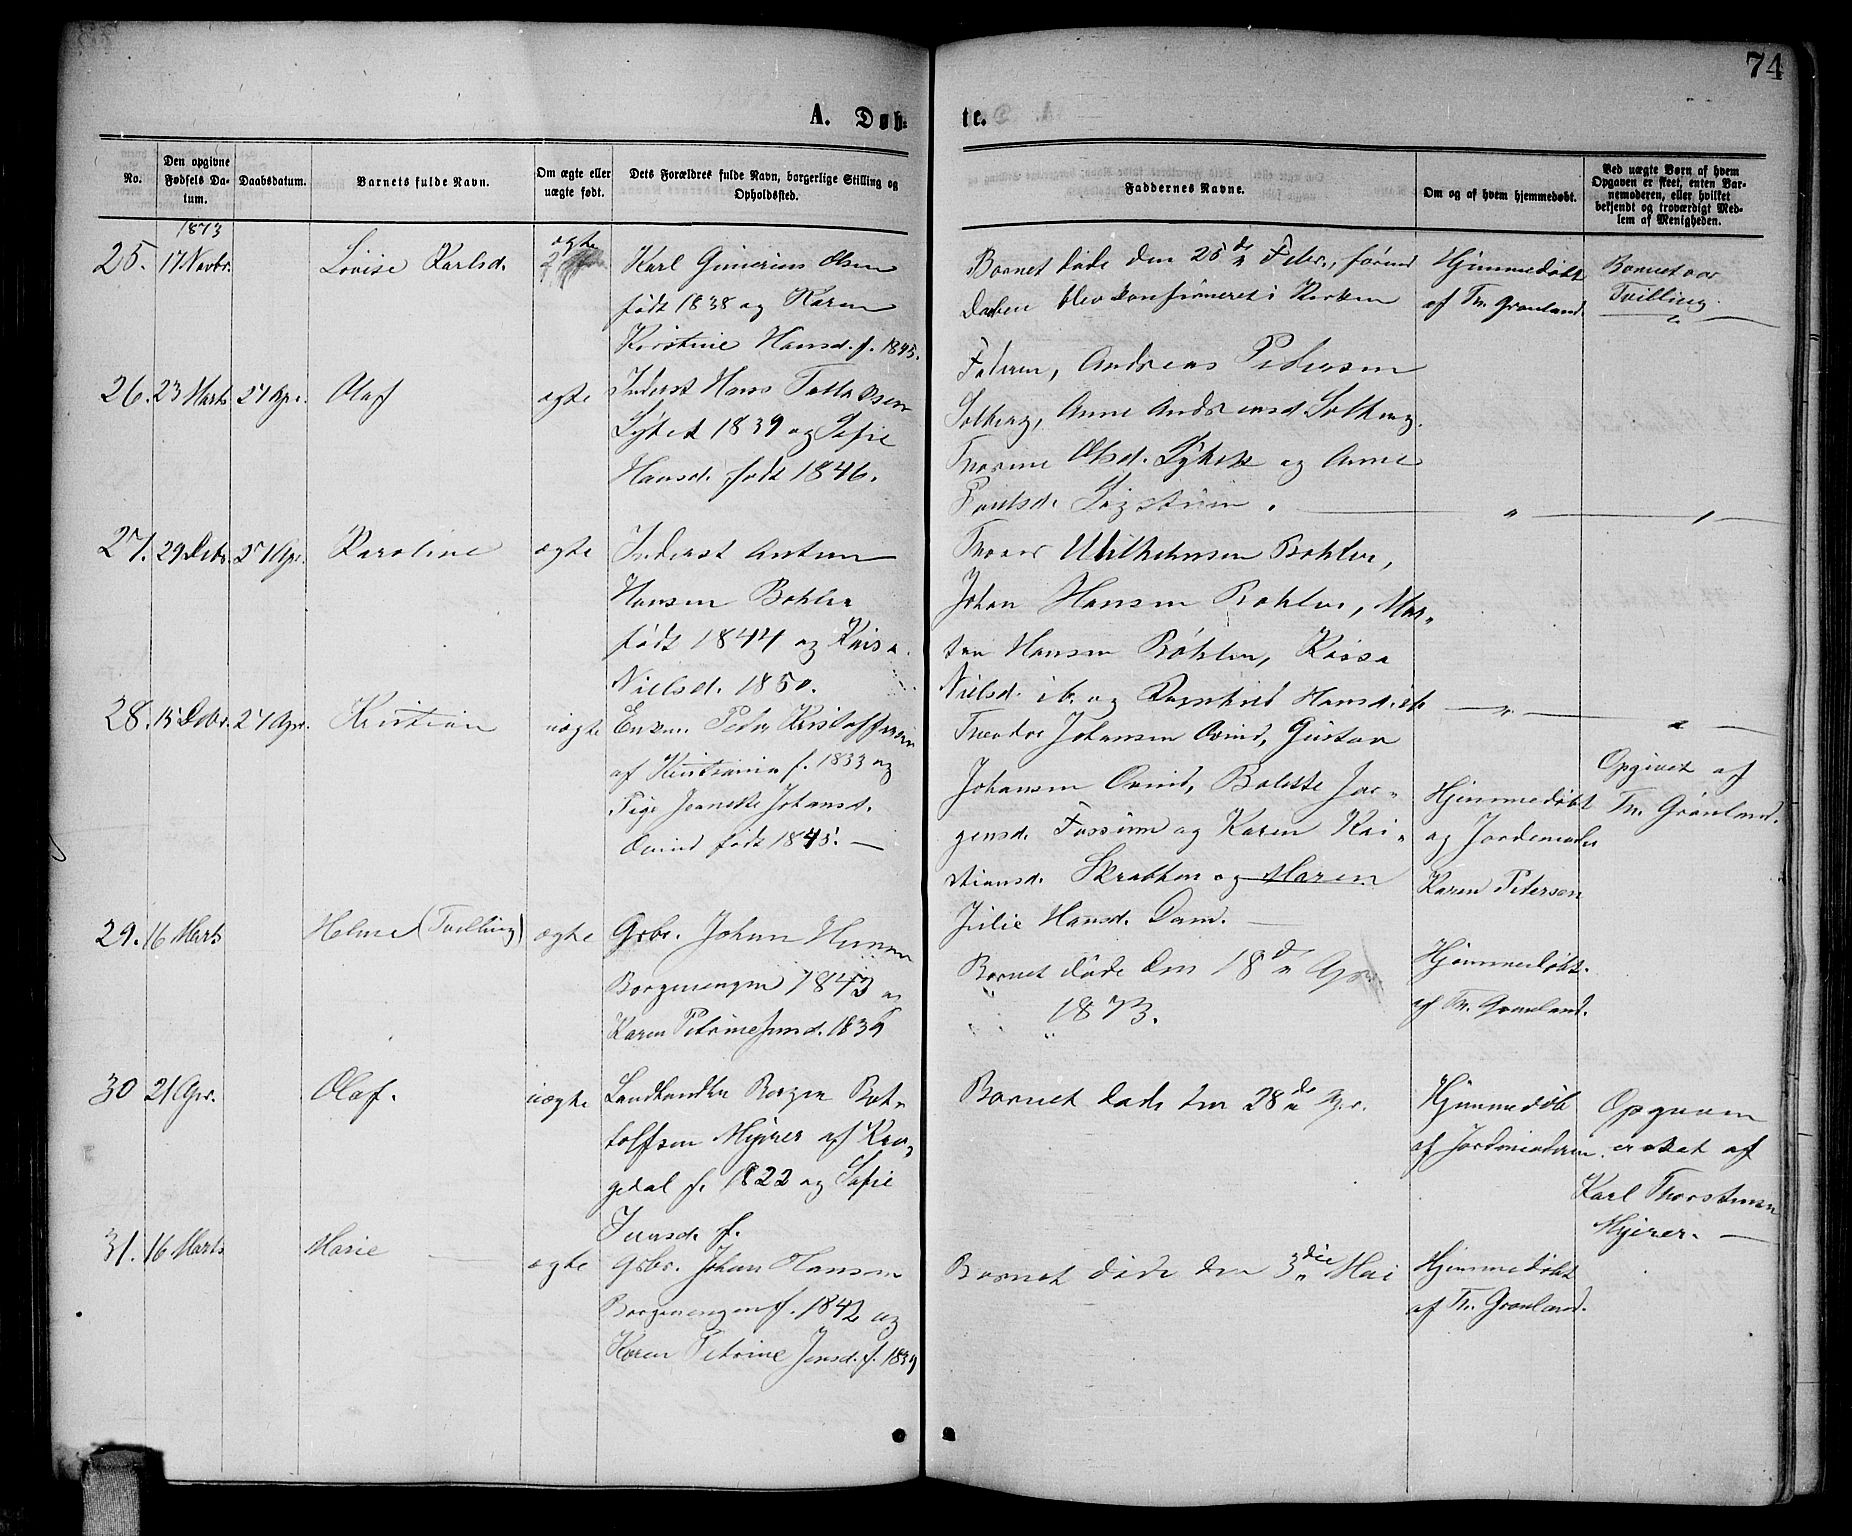 74
A. Døb-
te.
No.
Den opgivne Fødsels Datum.
Daabsdatum.
Barnets fulde Navn.
Om ægte eller uægte født.
Dets Forældres fulde Navn, borgerlige Stilling og Opholdssted.
Faddernes Navne.
Om og af hvem hjemmedøbt.
Ved uægte Børn af hvem Opgaven er skeet, enten Barnemoderen, eller hvilket bekjendt og troværdigt Medlem af Menigheden.
1873
25. 17 Novbr. Lovise Karlsd. ægte
Karl Gunerius Olsen
født 1838 og Karen
Kirstine Hansd. f. 1845.
Barnet døde den 25de Febr., førend
Daaben blev konfirmeret i Kirken
Hjemmedøbt
af Th. Grønland.
Barnet var
Tvilling.
26. 23 Marts 27 Apr. Olaf ægte
Inderst Hans
1839 og Sofie
Hansd. født 1846.
Faderen, Andreas Petersen
Solberg, Anne Andreasd. Solberg,
Thorine Olsd. og Anne
Paulsd.
27. 29 Debr. 27 Apr. Karoline ægte
Inderst Anton
Hansen Bøhler
født 1844 og Kaisa
Nielsd. 1850.
Thoer Wilhelmsen Bøhler,
Johan Hansen Bøhler, Mar-
tin Hansen Bøhler, Kaisa
Nielsd. ib. og Ragnhild Hansd. ib.
28. 15 Debr. 27 Apr. Kristian uægte
Enkem. Peder Kristoffersen
af Kristiania f. 1833 og
Pige Jeanette Johansd.
Ovind født 1845. —
Theodor Johansen Ovind, Gustav
Johansen Ovind, Bolette Jør-
gensd. Fossum og Karen Kri-
stiansd. Skrukken og Maren
Julie Hansd. Dam. —
Hjemmedøbt
og Jordemoder
Karen Petersen
Opgivet af
Th. Grønland.
29. 16 Marts Helene (Tvilling) ægte
Gsbr. Johan Hansen
Borgerengen 1843 og
Karen Petrine Jensd. 1839
Barnet døde den 18de Apr.
1873.
Hjemmedøbt
af Th. Grønland.
30 21 Apr. Olaf. uægte
Landhandler Borger Bot-
tolfsen Myrer af Krog-
gedal f. 1822 og Sofie
Jensd. f.
Barnet døde den 28de Apr.
Hjemmedøbt
af Jordemoderen.
Opgaven
er skeet af
Karl Thorstensen
Myrer. —
31. 16 Marts Marie — ægte
Gsbr. Johan Hansen
Borgerengen f. 1842 og
Karen Petrine Jensd. f. 1839
Barnet døde den 3die Mai
Hjemmedøbt
af Th. Grønland.